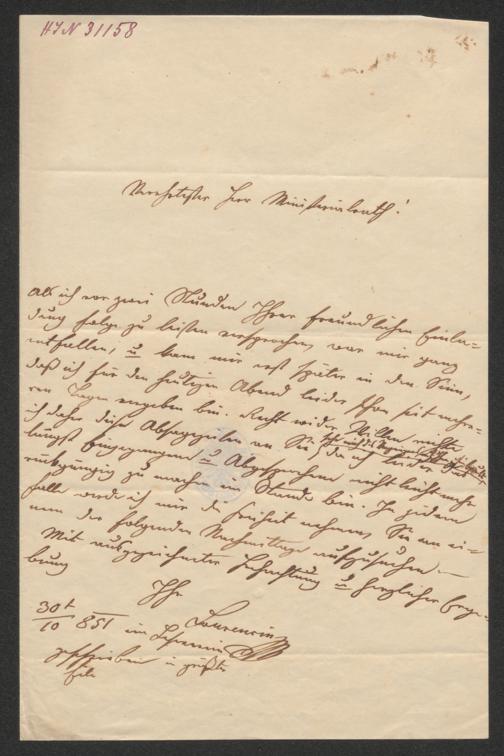 HJN 31158
Verehrtester Herr Ministerialrath!
Als ich vor zwei Stunden Ihrer freundlichen Einla-
dung Folge zu leisten versprochen, war mir ganz
entfallen, u kam mir erst später in den Sinn,
daß ich für den heutigen Abend leider schon seit mehre-
ren Tagen vergeben bin. Recht wider Willen richte
ich daher diese Absagezeilen an Sie, da ich leider das
längst Eingegangene u Abgesprochene nicht leicht mehr
rückgängig zu machen im Stande bin. In jedem
Falle werde ich mir die Freiheit nehmen, Sie an ei-
nem der folgenden Nachmittage aufzusuchen. –
Mit ausgezeichneter Hochachtung u herzlicher Erge-
bung
Ihr
Laurencin
30t/10 851 im
geschrieben in größter
Eile